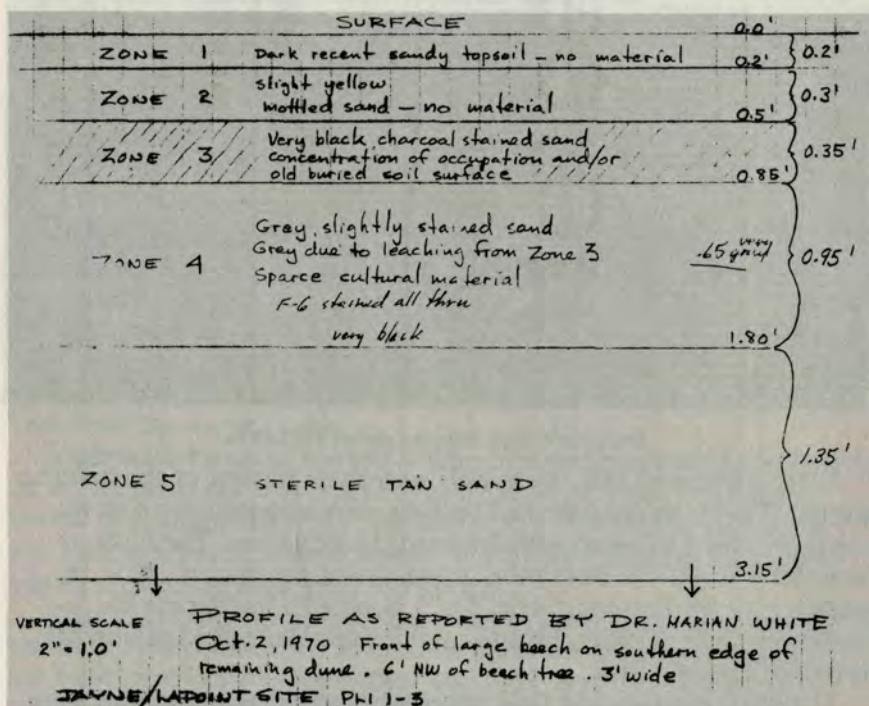 SURFACE 0.0'
ZONE 1 Dark recent sandy topsoil – no material 0.2' 0.2'
slight yellow
ZONE 2 mottled sand – no material 0.5' 0.3'
Very black charcoal stained sand
ZONE 3 concentration of occupation and/or 0.35'
old buried soil surface 0.85'
Gray slightly stained sand
Grey due to leaching from Zone 3 .65 0.95'
ZONE 4 Sparce cultural material
F-6 stained all thru
very black 1.80'
1.35'
ZONE 5 STERILE TAN SAND
3.15'
VERTICAL SCALE PROFILE AS REPORTED BY DR. MARIAN WHITE
2" = 1.0' Oct. 2, 1970 Front of large beech on southern edge of
remaining dune. 6' NW of beech tree. 3' wide
JAYNE/LAPOINT SITE Phl 1-3